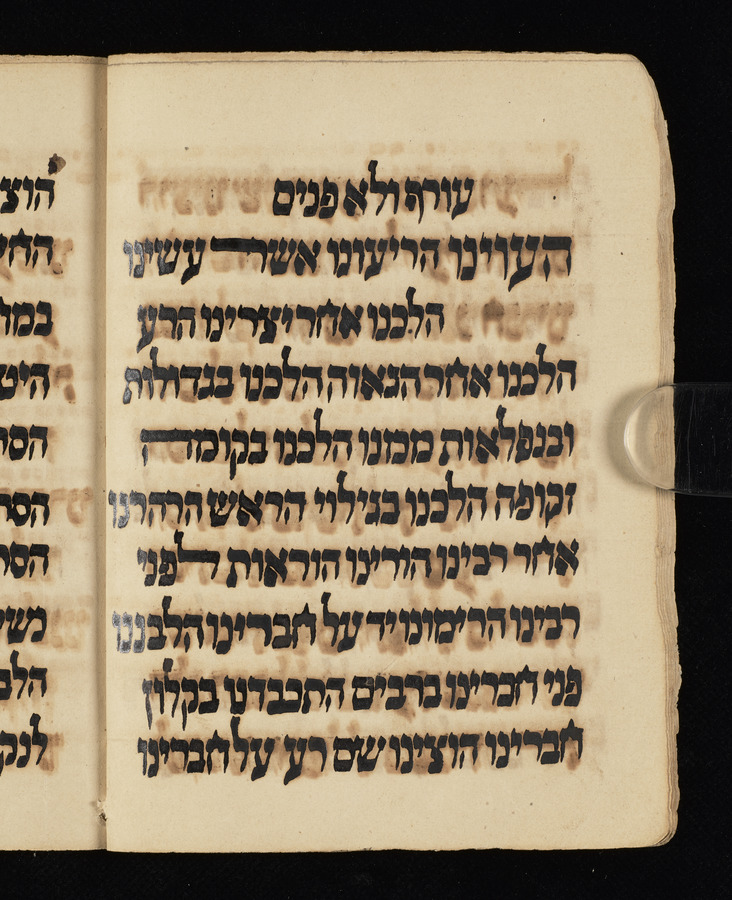 עורף ולא פנים
העוינו הריעונו אשרה עשינו
הלכנו אחר יצרינו הרע
הלכנו אחר הגאוה הלכנו בגדולות
ובנפלאות ממנו הלכנו בקומה
זקופה הלכנו בגילוי הראש הרהרנו
אחר רבינו הורינו הוראות לפני
רבינו הרימונו יד על חברינו הלבננו
פני חברינו ברבים התכבדנו בקלון
חברינו הוצינו שם רע על חברינו
הוצי
במו
היט
הסר
הסר
הסר
משי
הלב
לנק